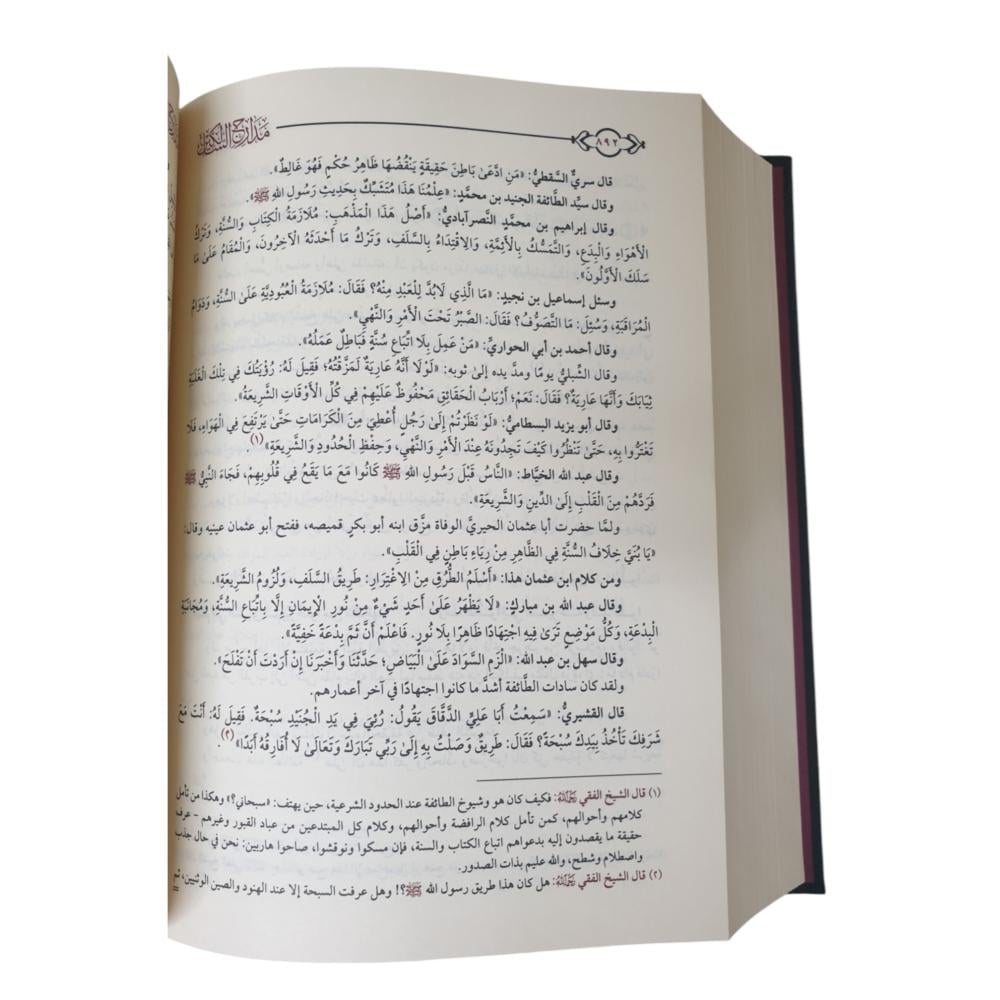 مدارج السالكين
٨٩٢
قال سريٌّ السَّقطيُّ: «مَنِ ادَّعَىٰ بَاطِنَ حَقِيقَةٍ يَنْقُضُهَا ظَاهِرُ حُكْمٍ فَهُوَ غَالِطٌ».
وقال سيِّد الطَّائفة الجنيد بن محمَّد: «عِلْمُنَا هَذَا مُتَشَبِّكٌ بِحَدِيثِ رَسُولِ اللهِ ﷺ».
وقال إبراهيم بن محمَّدٍ النَّصرآباديُّ: «أَصْلُ هَذَا الْمَذْهَبِ: مُلَازَمَةُ الْكِتَابِ وَالسُّنَّةِ، وَتَرْكُ
الْأَهْوَاءِ وَالْبِدَعِ، وَالتَّمَسُّكُ بِالْأَئِمَّةِ، وَالِاقْتِدَاءُ بِالسَّلَفِ، وَتَرْكُ مَا أَحْدَثَهُ الْآخِرُونَ، وَالْمُقَامُ عَلَىٰ مَا
سَلَكَ الْأَوَّلُونَ».
وسئل إسماعيل بن نجيد: «مَا الَّذِي لَابُدَّ لِلْعَبْدِ مِنْهُ؟ فَقَالَ: مُلَازَمَةُ الْعُبُودِيَّةِ عَلَىٰ السُّنَّةِ، وَدَوَامُ
الْمُرَاقَبَةِ، وَسُئِلَ: مَا التَّصَوُّفُ؟ فَقَالَ: الصَّبْرُ تَحْتَ الْأَمْرِ وَالنَّهْيِ».
وقال أحمد بن أبي الحواريِّ: «مَنْ عَمِلَ بِلَا اتِّبَاعِ سُنَّةٍ فَبَاطِلٌ عَمَلُهُ».
وقال الشِّبليُّ يومًا ومدَّ يده إلىٰ ثوبه: «لَوْلَا أَنَّهُ عَارِيَةٌ لَمَزَّقْتُهُ؛ فَقِيلَ لَهُ: رُؤْيَتُكَ فِي تِلْكَ الْغَلَبَةِ
ثِيَابَكَ وَأَنَّهَا عَارِيَةٌ؟ فَقَالَ: نَعَمْ؛ أَرْبَابُ الْحَقَائِقِ مَحْفُوظٌ عَلَيْهِمْ فِي كُلِّ الْأَوْقَاتِ الشَّرِيعَةُ».
وقال أبو يزيد البسطاميُّ: «لَوْ نَظَرْتُمْ إِلَىٰ رَجُلٍ أُعْطِيَ مِنَ الْكَرَامَاتِ حَتَّىٰ يَرْتَفِعَ فِي الْهَوَاءِ، فَلَا
تَغْتَرُّوا بِهِ، حَتَّىٰ تَنْظُرُوا كَيْفَ تَجِدُونَهُ عِنْدَ الْأَمْرِ وَالنَّهْيِ، وَحِفْظِ الْحُدُودِ وَالشَّرِيعَةِ»(١).
وقال عبد الله الخيَّاط: «النَّاسُ قَبْلَ رَسُولِ اللهِ ﷺ كَانُوا مَعَ مَا يَقَعُ فِي قُلُوبِهِمْ، فَجَاءَ النَّبِيُّ ﷺ
فَرَدَّهُمْ مِنَ الْقَلْبِ إِلَىٰ الدِّينِ وَالشَّرِيعَةِ».
ولمَّا حضرت أبا عثمان الحيريَّ الوفاة مزَّق ابنه أبو بكرٍ قميصه، ففتح أبو عثمان عينيه وقال:
«يَا بُنَيَّ خِلَافُ السُّنَّةِ فِي الظَّاهِرِ مِنْ رِيَاءِ بَاطِنٍ فِي الْقَلْبِ».
ومن كلام ابن عثمان هذا: «أَسْلَمُ الطُّرُقِ مِنْ الِاغْتِرَارِ: طَرِيقُ السَّلَفِ، وَلُزُومُ الشَّرِيعَةِ».
وقال عبد الله بن مباركٍ: «لَا يَظْهَرُ عَلَىٰ أَحَدٍ شَيْءٌ مِنْ نُورِ الْإِيمَانِ إِلَّا بِاتِّبَاعِ السُّنَّةِ، وَمُجَانَبَةِ
الْبِدْعَةِ، وَكُلُّ مَوْضِعٍ تَرَىٰ فِيهِ اجْتِهَادًا ظَاهِرًا بِلَا نُورٍ. فَاعْلَمْ أَنَّ ثَمَّ بِدْعَةً خَفِيَّةً».
وقال سهل بن عبد الله: «الْزَمِ السَّوَادَ عَلَىٰ الْبَيَاضِ؛ حَدَّثَنَا وَأَخْبَرَنَا إِنْ أَرَدْتَ أَنْ تُفْلَحَ».
ولقد كان سادات الطَّائفة أشدَّ ما كانوا اجتهادًا في آخر أعمارهم.
قال القشيريُّ: «سَمِعْتُ أَبَا عَلِيٍّ الدَّقَّاقَ يَقُولُ: رُئِيَ فِي يَدِ الْجُنَيْدِ سُبْحَةٌ. فَقِيلَ لَهُ: أَنْتَ مَعَ
شَرَفِكَ تَأْخُذُ بِيَدِكَ سُبْحَةً؟ فَقَالَ: طَرِيقٌ وَصَلْتُ بِهِ إِلَىٰ رَبِّي تَبَارَكَ وَتَعَالَىٰ لَا أُفَارِقُهُ أَبَدًا»(٢).
(١) قال الشيخ الفقي رحمه الله: فكيف كان هو وشيوخ الطائفة عند الحدود الشرعية، حين يهتف: «سبحاني؟» وهكذا من تأمل
كلامهم وأحوالهم، كمن تأمل كلام الرافضة وأحوالهم، وكلام كل المبتدعين من عباد القبور وغيرهم - عرف
حقيقة ما يقصدون إليه بدعواهم اتباع الكتاب والسنة، فإن مسكوا ونوقشوا، صاحوا هاربين: نحن في حال جذب
واصطلام وشطح، والله عليم بذات الصدور.
(٢) قال الشيخ الفقي رحمه الله: هل كان هذا طريق رسول الله ﷺ؟! وهل عرفت السبحة إلا عند الهنود والصين الوثنيين، ثم